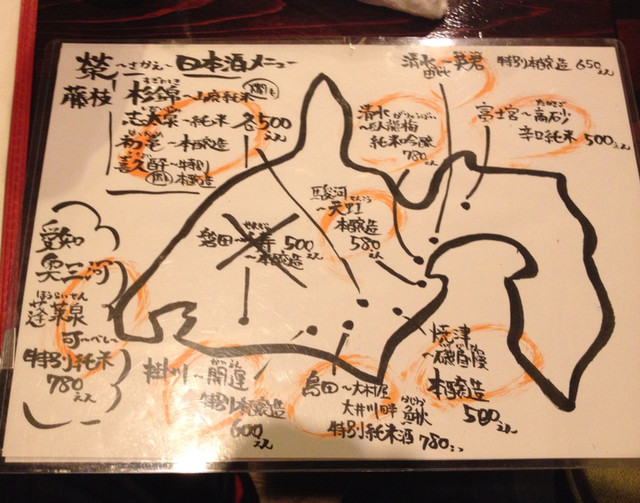 榮 ～さかえ～ 日本酒メニュー
藤枝
すぎにしき
杉錦～山廃純米
志太泉～純米 各500えん
初亀～本醸造
喜久酔～特別本醸造
清水由比～英君 特別本醸造 650えん
清水
～臥龍梅
純米吟醸
780えん
富士宮～高砂
辛口純米 500えん
駿河
～天虹
本醸造
580えん
磐田～
500えん
～本醸造
愛知
奥三河
ほうらいせん
蓬莱泉
可～べし～
特別純米
780えん
掛川～開運
特別本醸造
600えん
島田～大村屋
大井川畔
特別純米酒 780えん
焼津
～磯自慢
本醸造
500えん